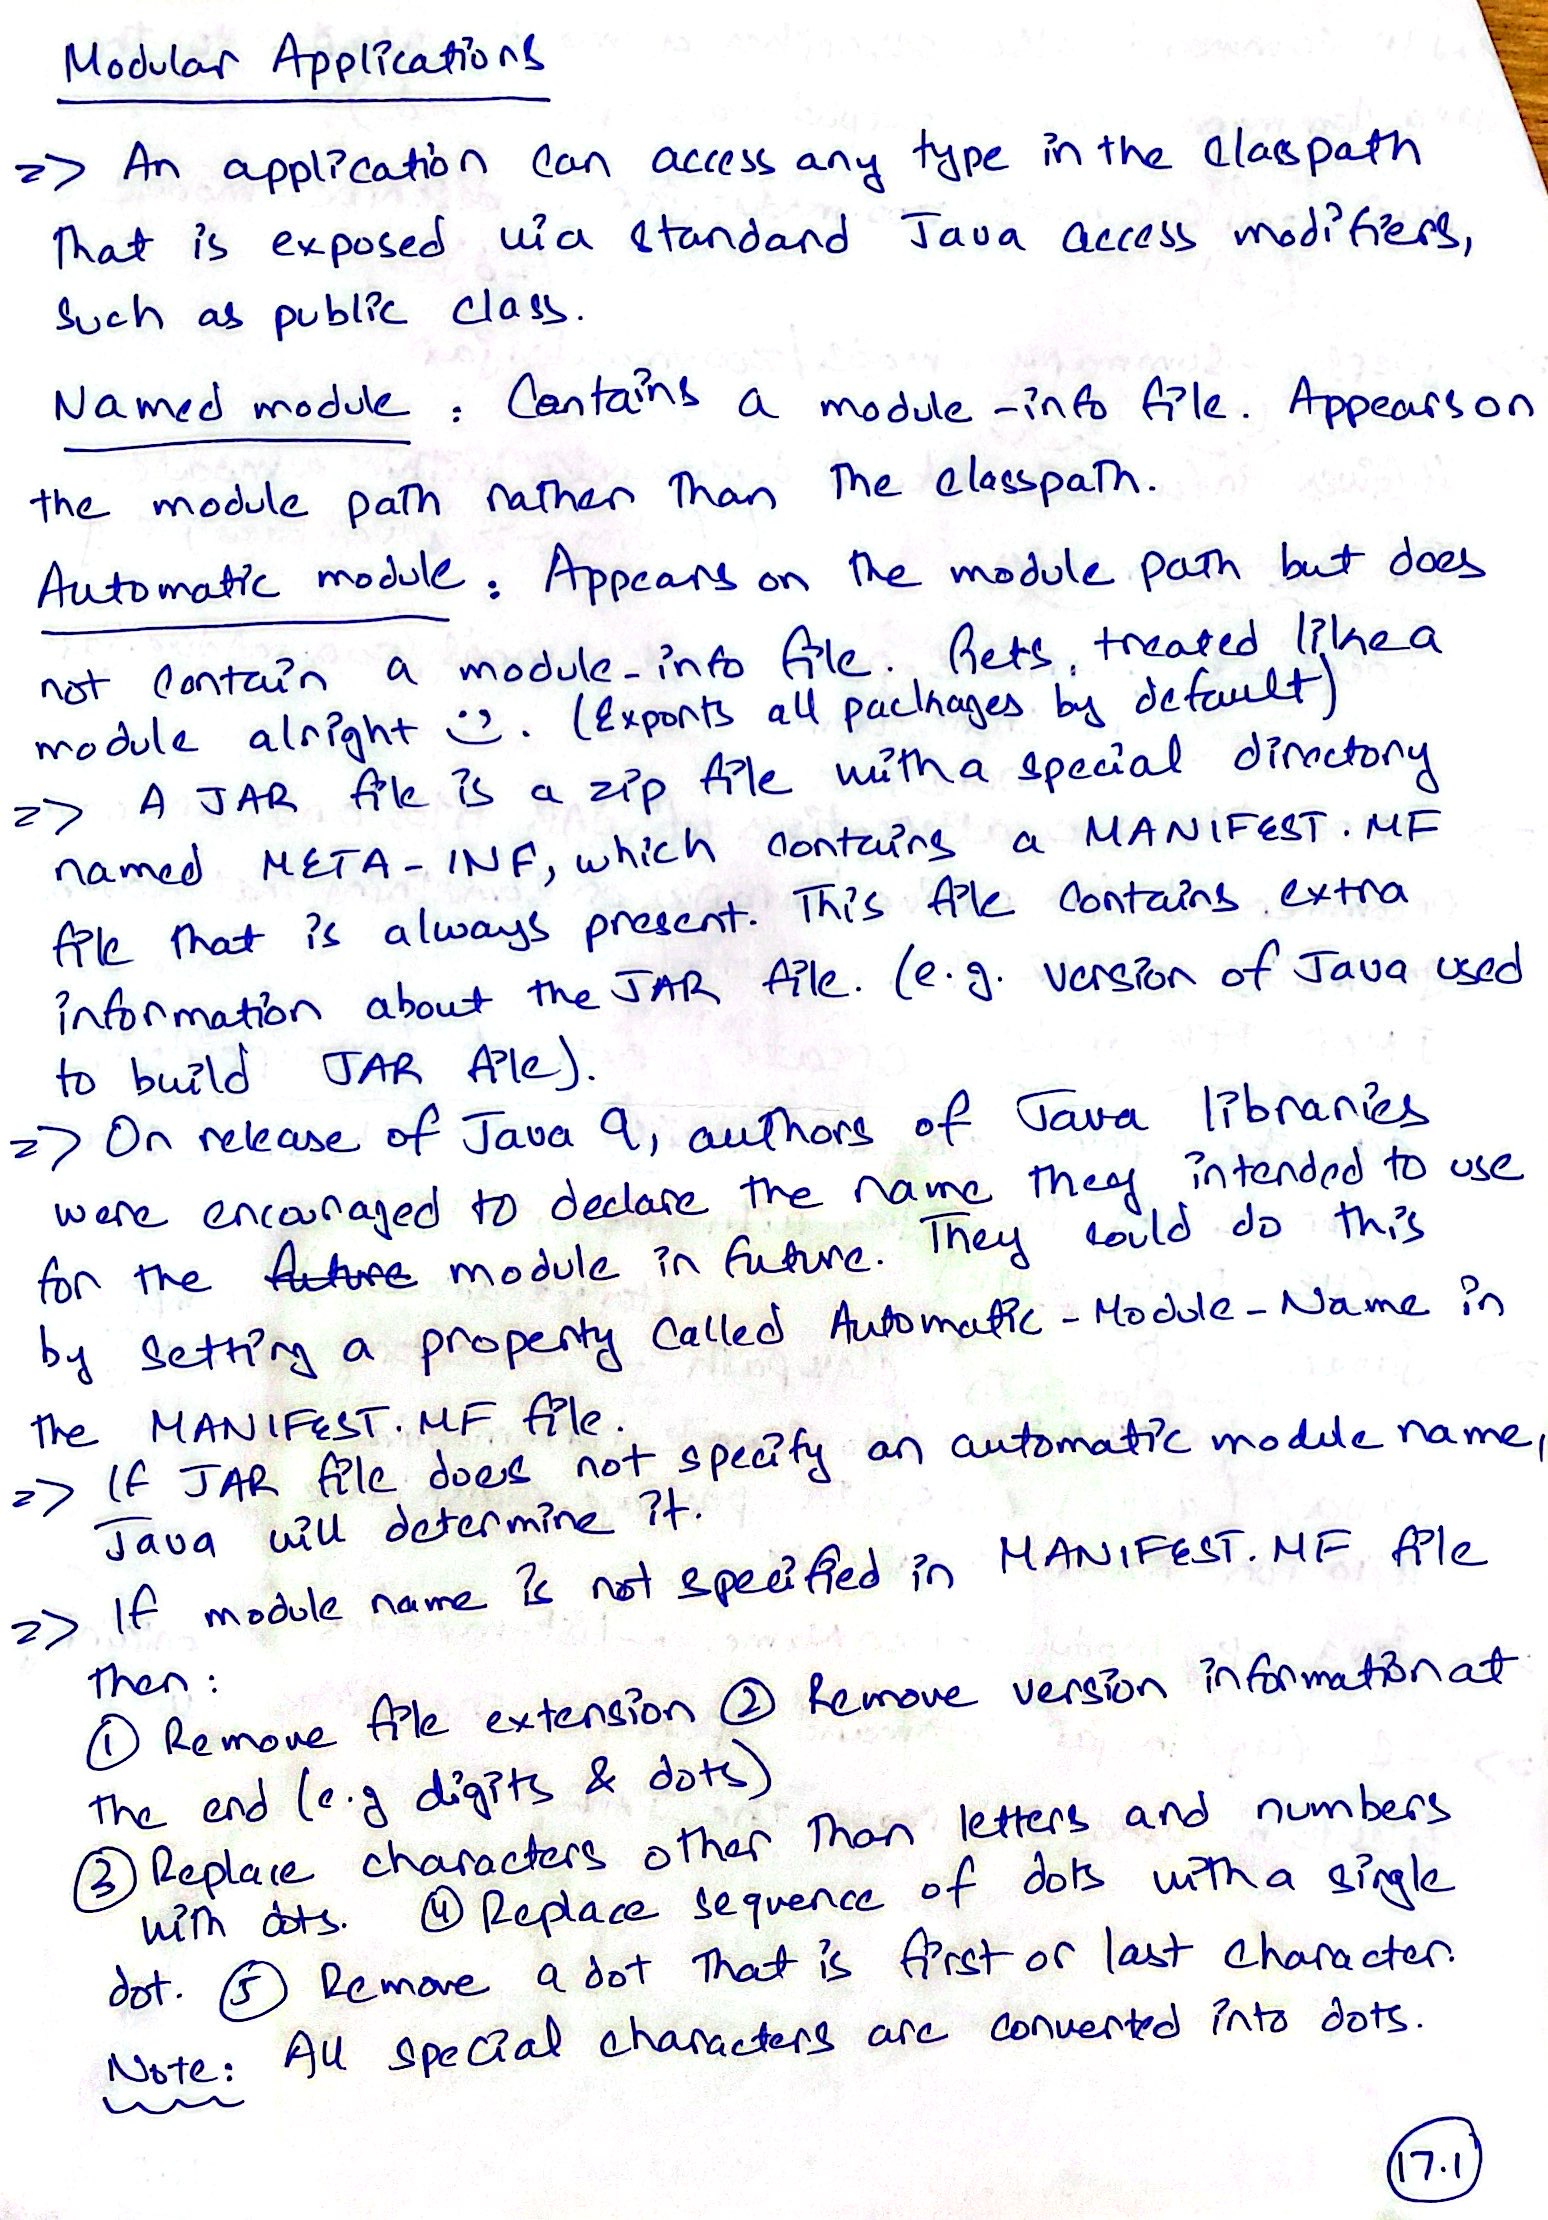 Modular Applications
=> An application can access any type in the classpath
that is exposed via standard Java access modifiers,
such as public class.
Named module : Contains a module-info file. Appears on
the module path rather than the classpath.
Automatic module : Appears on the module path but does
not contain a module-info file. Gets treated like a
module alright :). (Exports all packages by default)
=> A JAR file is a zip file with a special directory
named META-INF, which contains a MANIFEST.MF
file that is always present. This file contains extra
information about the JAR file. (e.g. version of Java used
to build JAR file).
=> On release of Java 9, authors of Java libraries
were encouraged to declare the name they intended to use
for the future module in future. They could do this
by setting a property called Automatic-Module-Name in
the MANIFEST.MF file.
=> If JAR file does not specify an automatic module name,
Java will determine it.
=> If module name is not specified in MANIFEST.MF file
then :
① Remove file extension ② Remove version information at
the end (e.g digits & dots)
③ Replace characters other than letters and numbers
with dots. ④ Replace sequence of dots with a single
dot. ⑤ Remove a dot that is first or last character.
Note: All special characters are converted into dots.
17.1